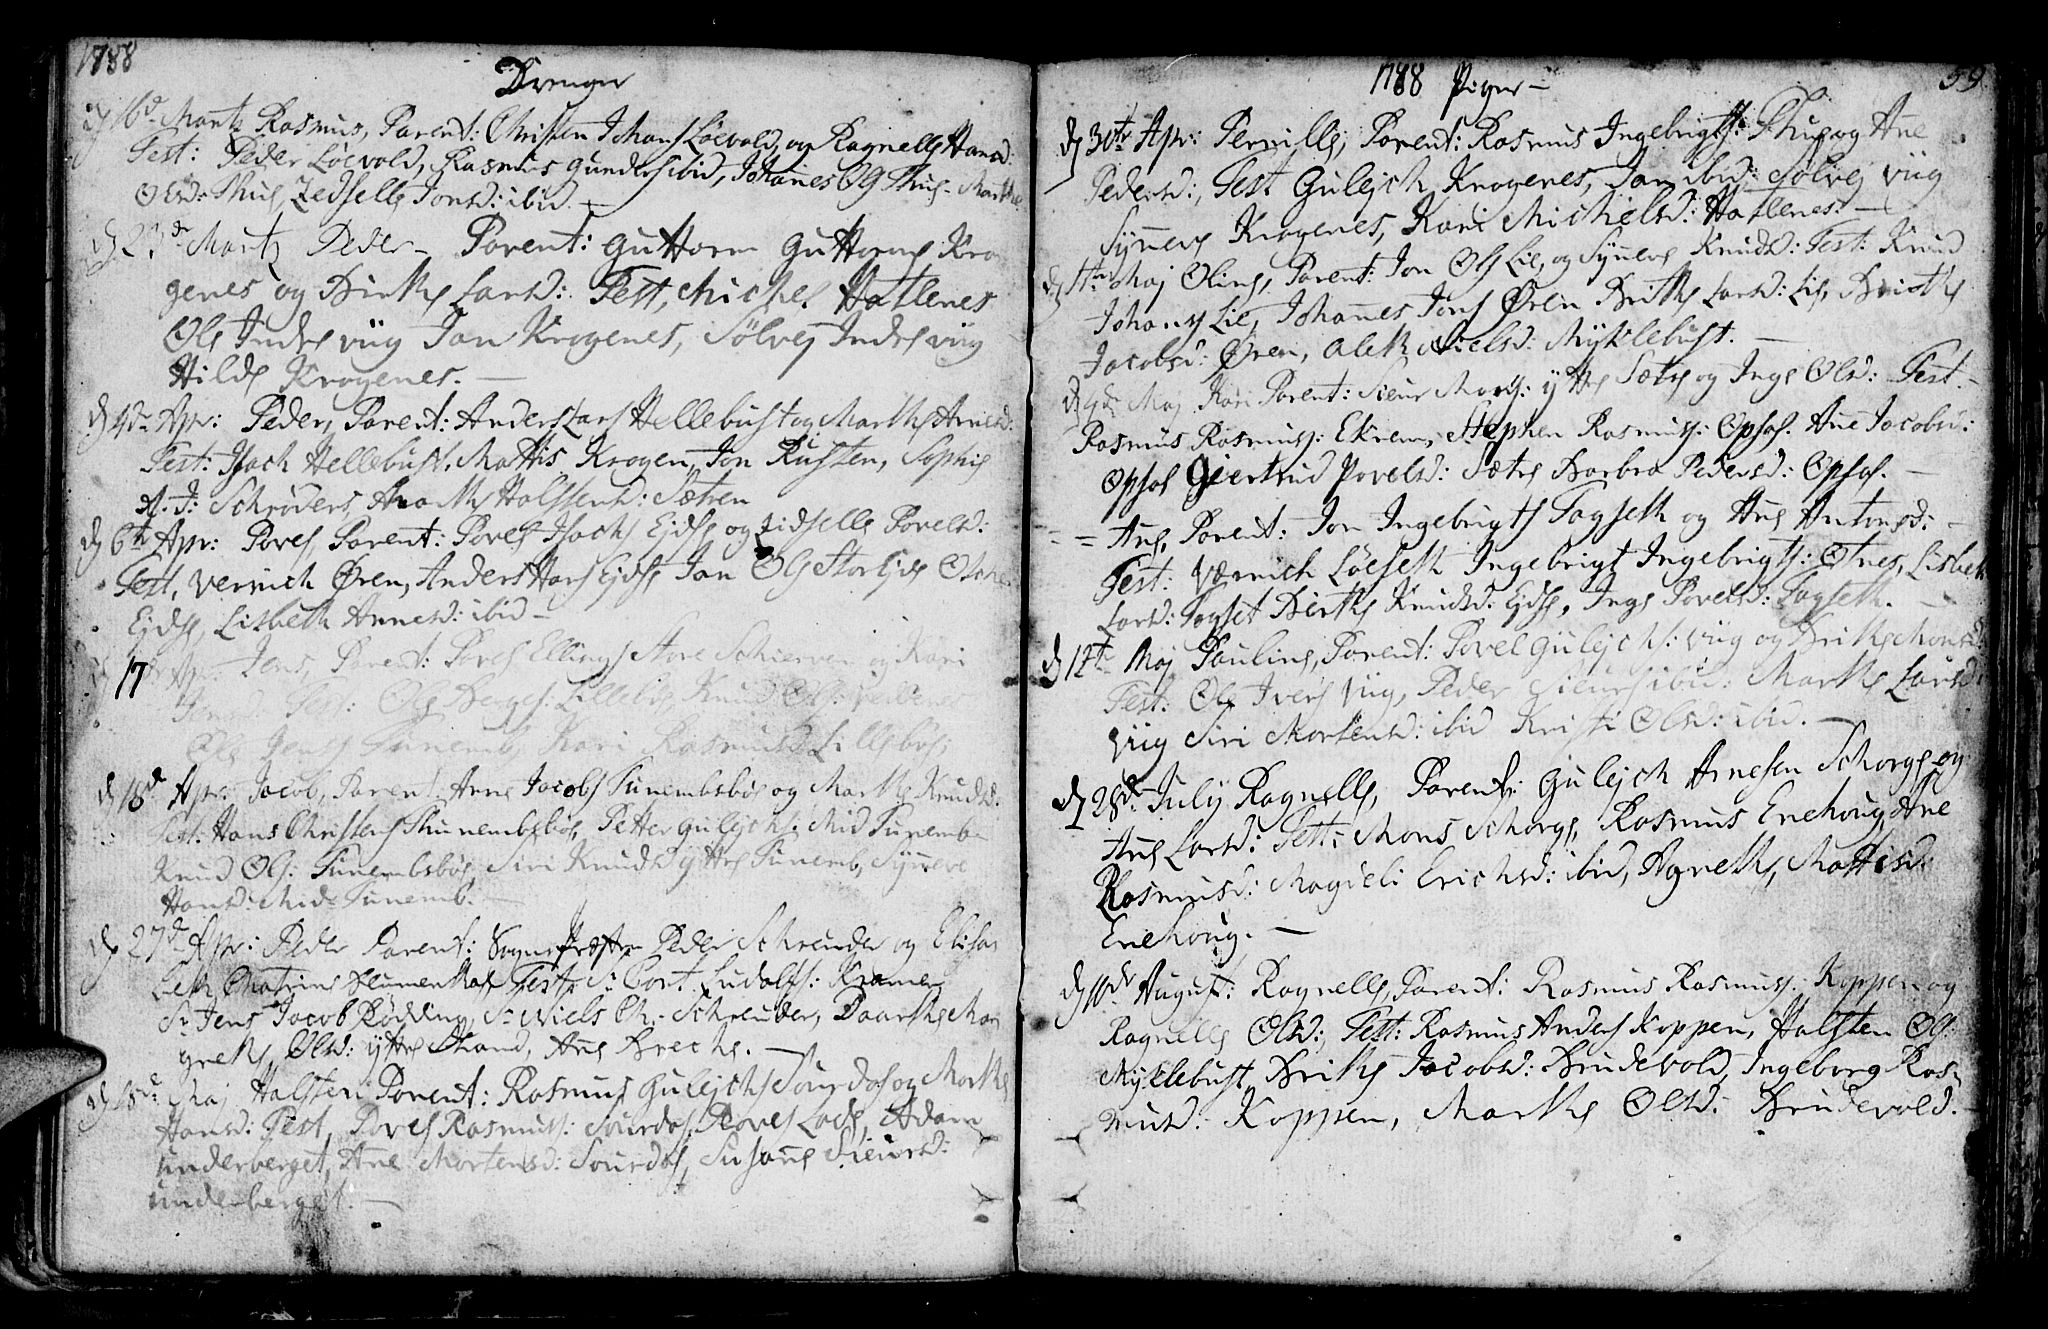 1788
Drenger
d 16d Martz Rasmus, Parent: Christen Johans Løevold, og Ragnelle Hansd:
Test: Peder Løevold, Rasmus Gunders ibid, Johannes Ols Thue - Marthe
Olsd: Thue, Zedselle Jonsd: ibid. -
d 23d Martz Peder - Parent: Guttorm Guttorms Kro
genes og Birthe Larsd: Test, Michel Hatlenes
Ole Indre viig Jan Krogenes, Sølvej Indre viig
Hilde Krogenes. -
d 4d Apr: Peder, Parent: Anders Lars Hellebust og Marthe Arnesd:
Test: Isach Hellebust, Mattis Krogen, Jon Rusten, Sophie
A. J: Schrøders, Marthe Halstensd: Sætren
d 6te Apr: Povel, Parent: Povel Isachs Ejdse og Zidselle Povelsd:
Test, Vernich Øren, Anders Hans Ejdse Jan Ols Storejde
Ejdse, Lisbeth Annesd: ibid -
17 Apr: Jens, Parent: Povel Ellings Store Schierve og Kari
Jensd: Test: Ole Lillebøe, Knud Ols:
Ole Jens Tunemb, Kari Rasmusd: Lillebøe
d 18d Apr: Jacob, Parent: Arne Jacobs Tunembsbøe og Marthe Knudsd:
Test: Hans Christens Thunembsbøe, Petter Gulejchs: Mid Tunemb
Knud Ols: Tunembsbøe, Siri Knudsd Yttre Tunemb, Synneve
Hansd: Mid Tunemb. -
d 27d Apr: Peder Parent: Sogne Præsten Peder Schreuder og Elisa
beth Cathrine Blumenthal, Test: Sr Cort Ludolfs: Kramer
Sr Jens Jacob Rødding, Sr Niels Ch: Schreuder, Daarthe Mar
grethe Olsd: Yttre Strand, Ane Brechs. -
d 18d: Maj Halsten Parent: Rasmus Gulejchs Sourdal og Marthe
Hansd: Test, Povel Rasmuss: Sourdal, Povel Lade, Adam
underberget, Ane Mortensd: Sourdal, Susane Siursd:
underberget. -
1788 Piger - 59
d 30te Apr: Pernille, Parent: Rasmus Ingebrigts: Thue og Ane
Pedersd:, Test Gulejch Krogenes, Jan ibid: Sølvej Viig
Synneve Krogenes, Kari Michelsd: Hatlenes. -
d 1te Maj Oline, Parent: Jon Ols Lie, og Synneve Knudsd: Test: Knud
Johans Lie, Johannes Jons Øren Brithe Larsd: Lie, Birthe
Jacobsd: Øren, Aleth Nielsd: Myklebust. -
d Maj Kari Parent: Siur Mons: Yttre Sætre og Inge Olsd: Test. -
Rasmus Rasmuss: Ekrem, Stephen Rasmuss: Opsal. Ane Jacobsd:
Opsal Giertrud Povelsd: Sætre Barbro Pedersd: Opsal. -
- = Ane, Parent: Jon Ingebrigts Fagseth og Ane Antonsd: -
Test: Værnich Løeseth Ingebrigt Ingebrigts: Otnes, Lisbeth
Larsd: Fagset Birthe Knudsd: Ejdse, Inge Povelsd: Fagseth. -
d 12te Maj Pauline, Parent: Povel Gulejchs: Viig og Birthe Monsd:
Test: Ole Ivers Viig, Peder Siurs ibid: Marthe Larsd:
Viig Siri Mortensd: ibid Kristi Olsd: ibid. -
d 28d: July Ragnelle, Parent: Gulejch Arnesen Schorge og
Ane Larsd: Test: Mons Schorge, Rasmus Enehoug, Ane
Rasmusd: Magdeli Erichsd: ibid, Agnethe, Mattisd:
Enehoug. -
d 10de August: Ragnelle, Parent: Rasmus Rasmuss: Koppen og
Ragnelle Olsd: Test: Rasmus Anders Koppen, Halsten Ols:
Myklebust, Brithe Jacobsd: Brudevold, Ingeborg Ras
musd: Koppen, Marthe Olsd: Brudevold. -